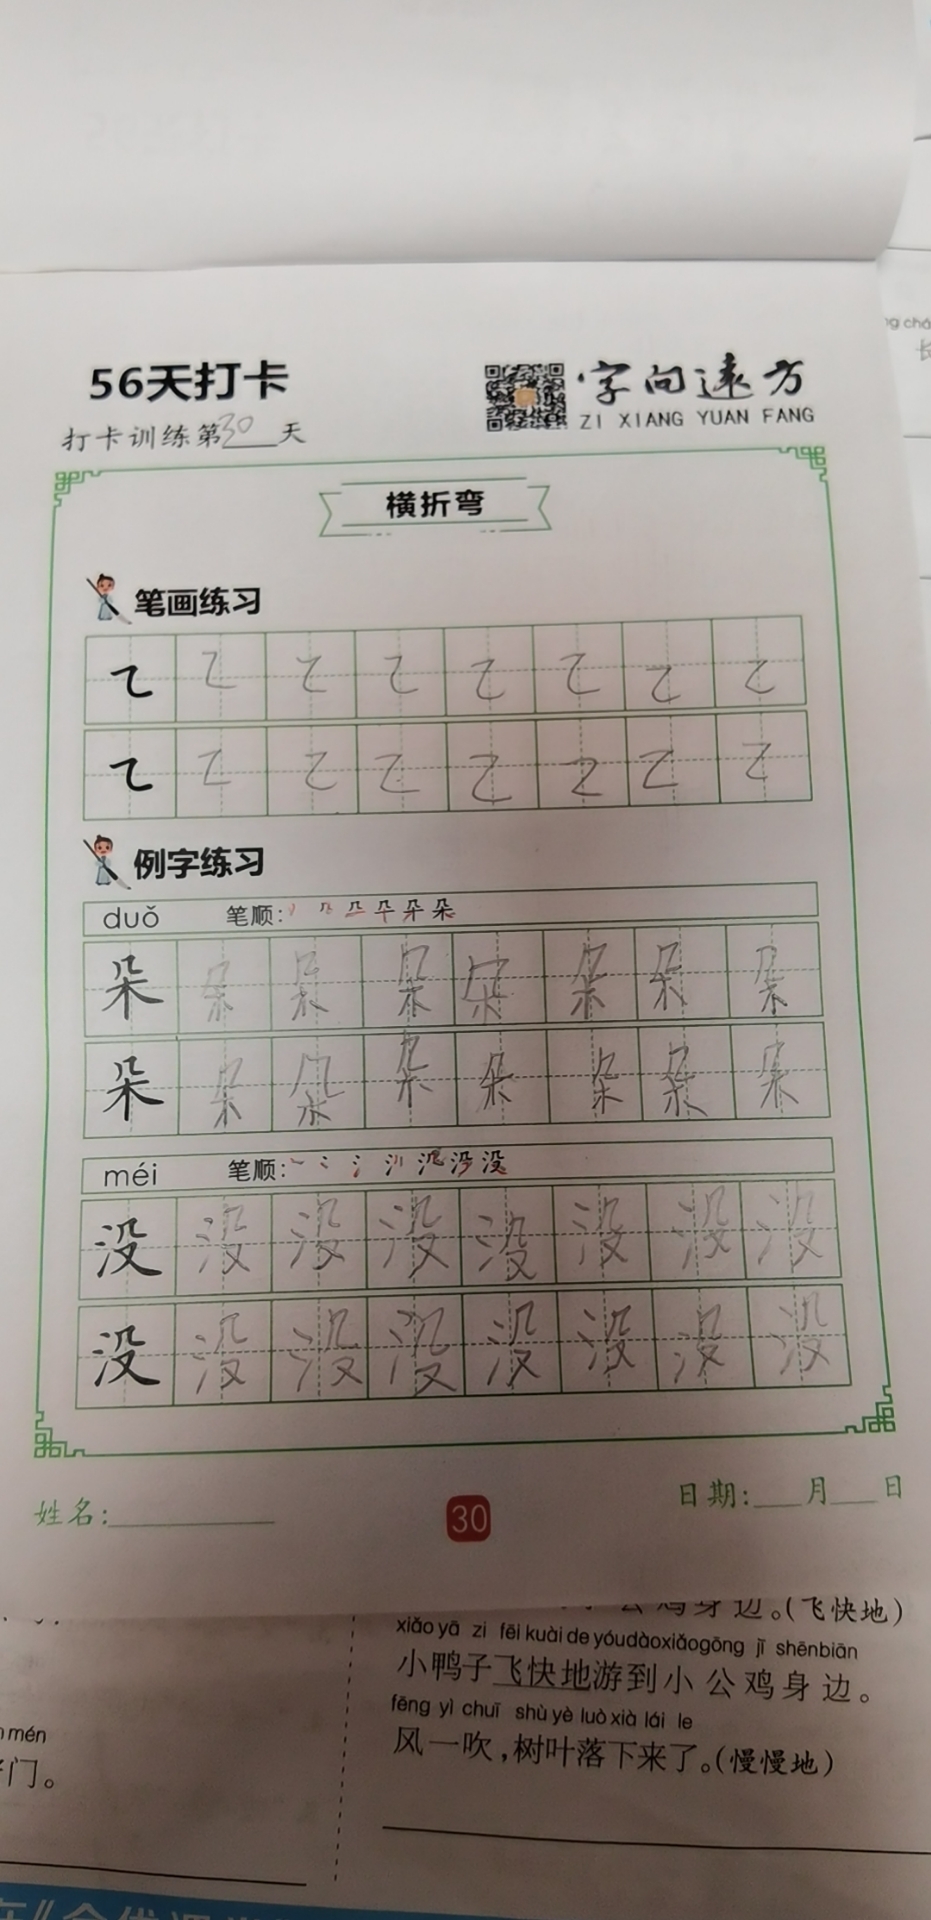 56天打卡
字向远方
ZI XIANG YUAN FANG
打卡训练第30天
横折弯
笔画练习
例字练习
duǒ 笔顺:
朵 朵 朵 朵 朵 朵 朵 朵
朵 朵 朵 朵 朵 朵 朵 朵
méi 笔顺:
没 没 没 没 没 没 没 没
没 没 没 没 没 没 没 没
姓名:
30
日期:___月___日
身边。(飞快地)
xiǎo yā zi fēi kuài de yóu dào xiǎo gōng jī shēn biān
小鸭子飞快地游到小公鸡身边。
fēng yì chuī shù yè luò xià lái le
风一吹,树叶落下来了。(慢慢地)
mén
门。